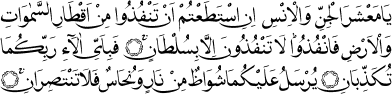 يَامَعْشَرَ الْجِنِّ وَالْاِنْسِ اِنِ اسْتَطَعْتُمْ اَنْ تَنْفُذُوا مِنْ اَقْطَارِ السَّمٰوَاتِ
وَالْاَرْضِ فَانْفُذُوا لَا تَنْفُذُونَ اِلَّا بِسُلْطَانٍ ۝ فَبِاَيِّ اٰلَاءِ رَبِّكُمَا
تُكَذِّبَانِ ۝ يُرْسَلُ عَلَيْكُمَا شُوَاظٌ مِنْ نَارٍ وَنُحَاسٌ فَلَا تَنْتَصِرَانِ ۝